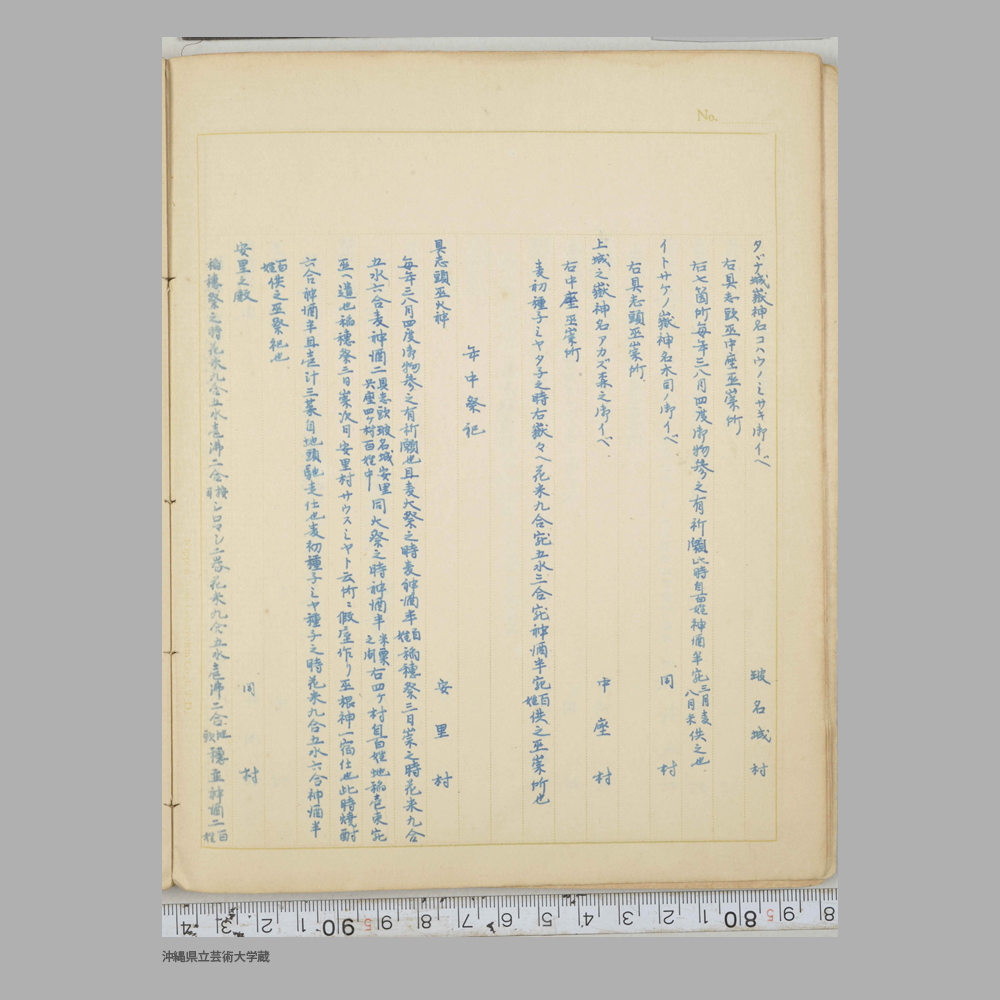 No.
タヾナ城嶽神名コハウノミサキ御イベ 玻名城村
右具志頭巫中座巫崇所
右七箇所毎年三八月四度御物参之有祈願此時自百姓神酒半宛三月麦八月米供之也
イトサケノ嶽神名木司ノ御イベ 同村
右具志頭巫崇所
上城之嶽神名アカズ森之御イベ 中座村
右中座巫崇所
麦初種子ミヤタ子之時右嶽々ヘ花米九合宛五水三合宛神酒半宛百姓供之巫崇所也
年中祭祀
具志頭巫火神 安里村
毎年三八月四度御物参之有祈願也且麦大祭之時麦神酒半百姓稲穂祭三日崇之時花米九合
五水六合麦神酒二具志頭玻名城安里中座四ケ村百姓中同大祭之時神酒半米粟之間右四ケ村自百姓地稲壱束宛
巫ヘ遣也稲穂祭三日崇次日安里村サウスミヤト云所ニ假座作リ巫根神一宿仕也此時焼酎
六合神酒半且壱汁三菜自地頭馳走仕也麦初種子ミヤ種子之時花米九合五水六合神酒半
百姓供之巫祭祀也
安里之殿 同村
稲穂祭之時花米九合五水壱沸二合シロマシ二器花米九合五水壱沸二合地頭穂並神酒二百姓
8
9
5
80
1
2
3
4
5
6
7
8
9
5
90
1
2
3
4
沖縄県立芸術大学蔵